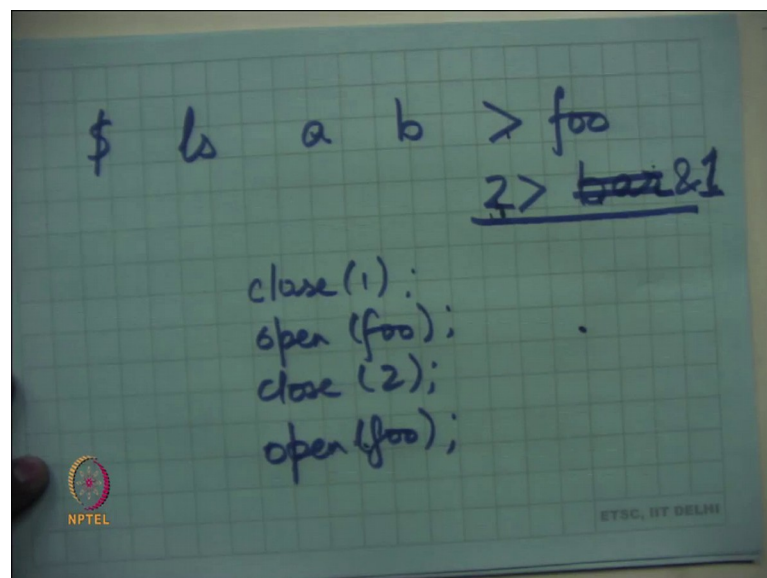 $ ls a b > foo
2> &1
close(1);
open(foo);
close(2);
open(foo);
NPTEL
ETSC, IIT DELHI